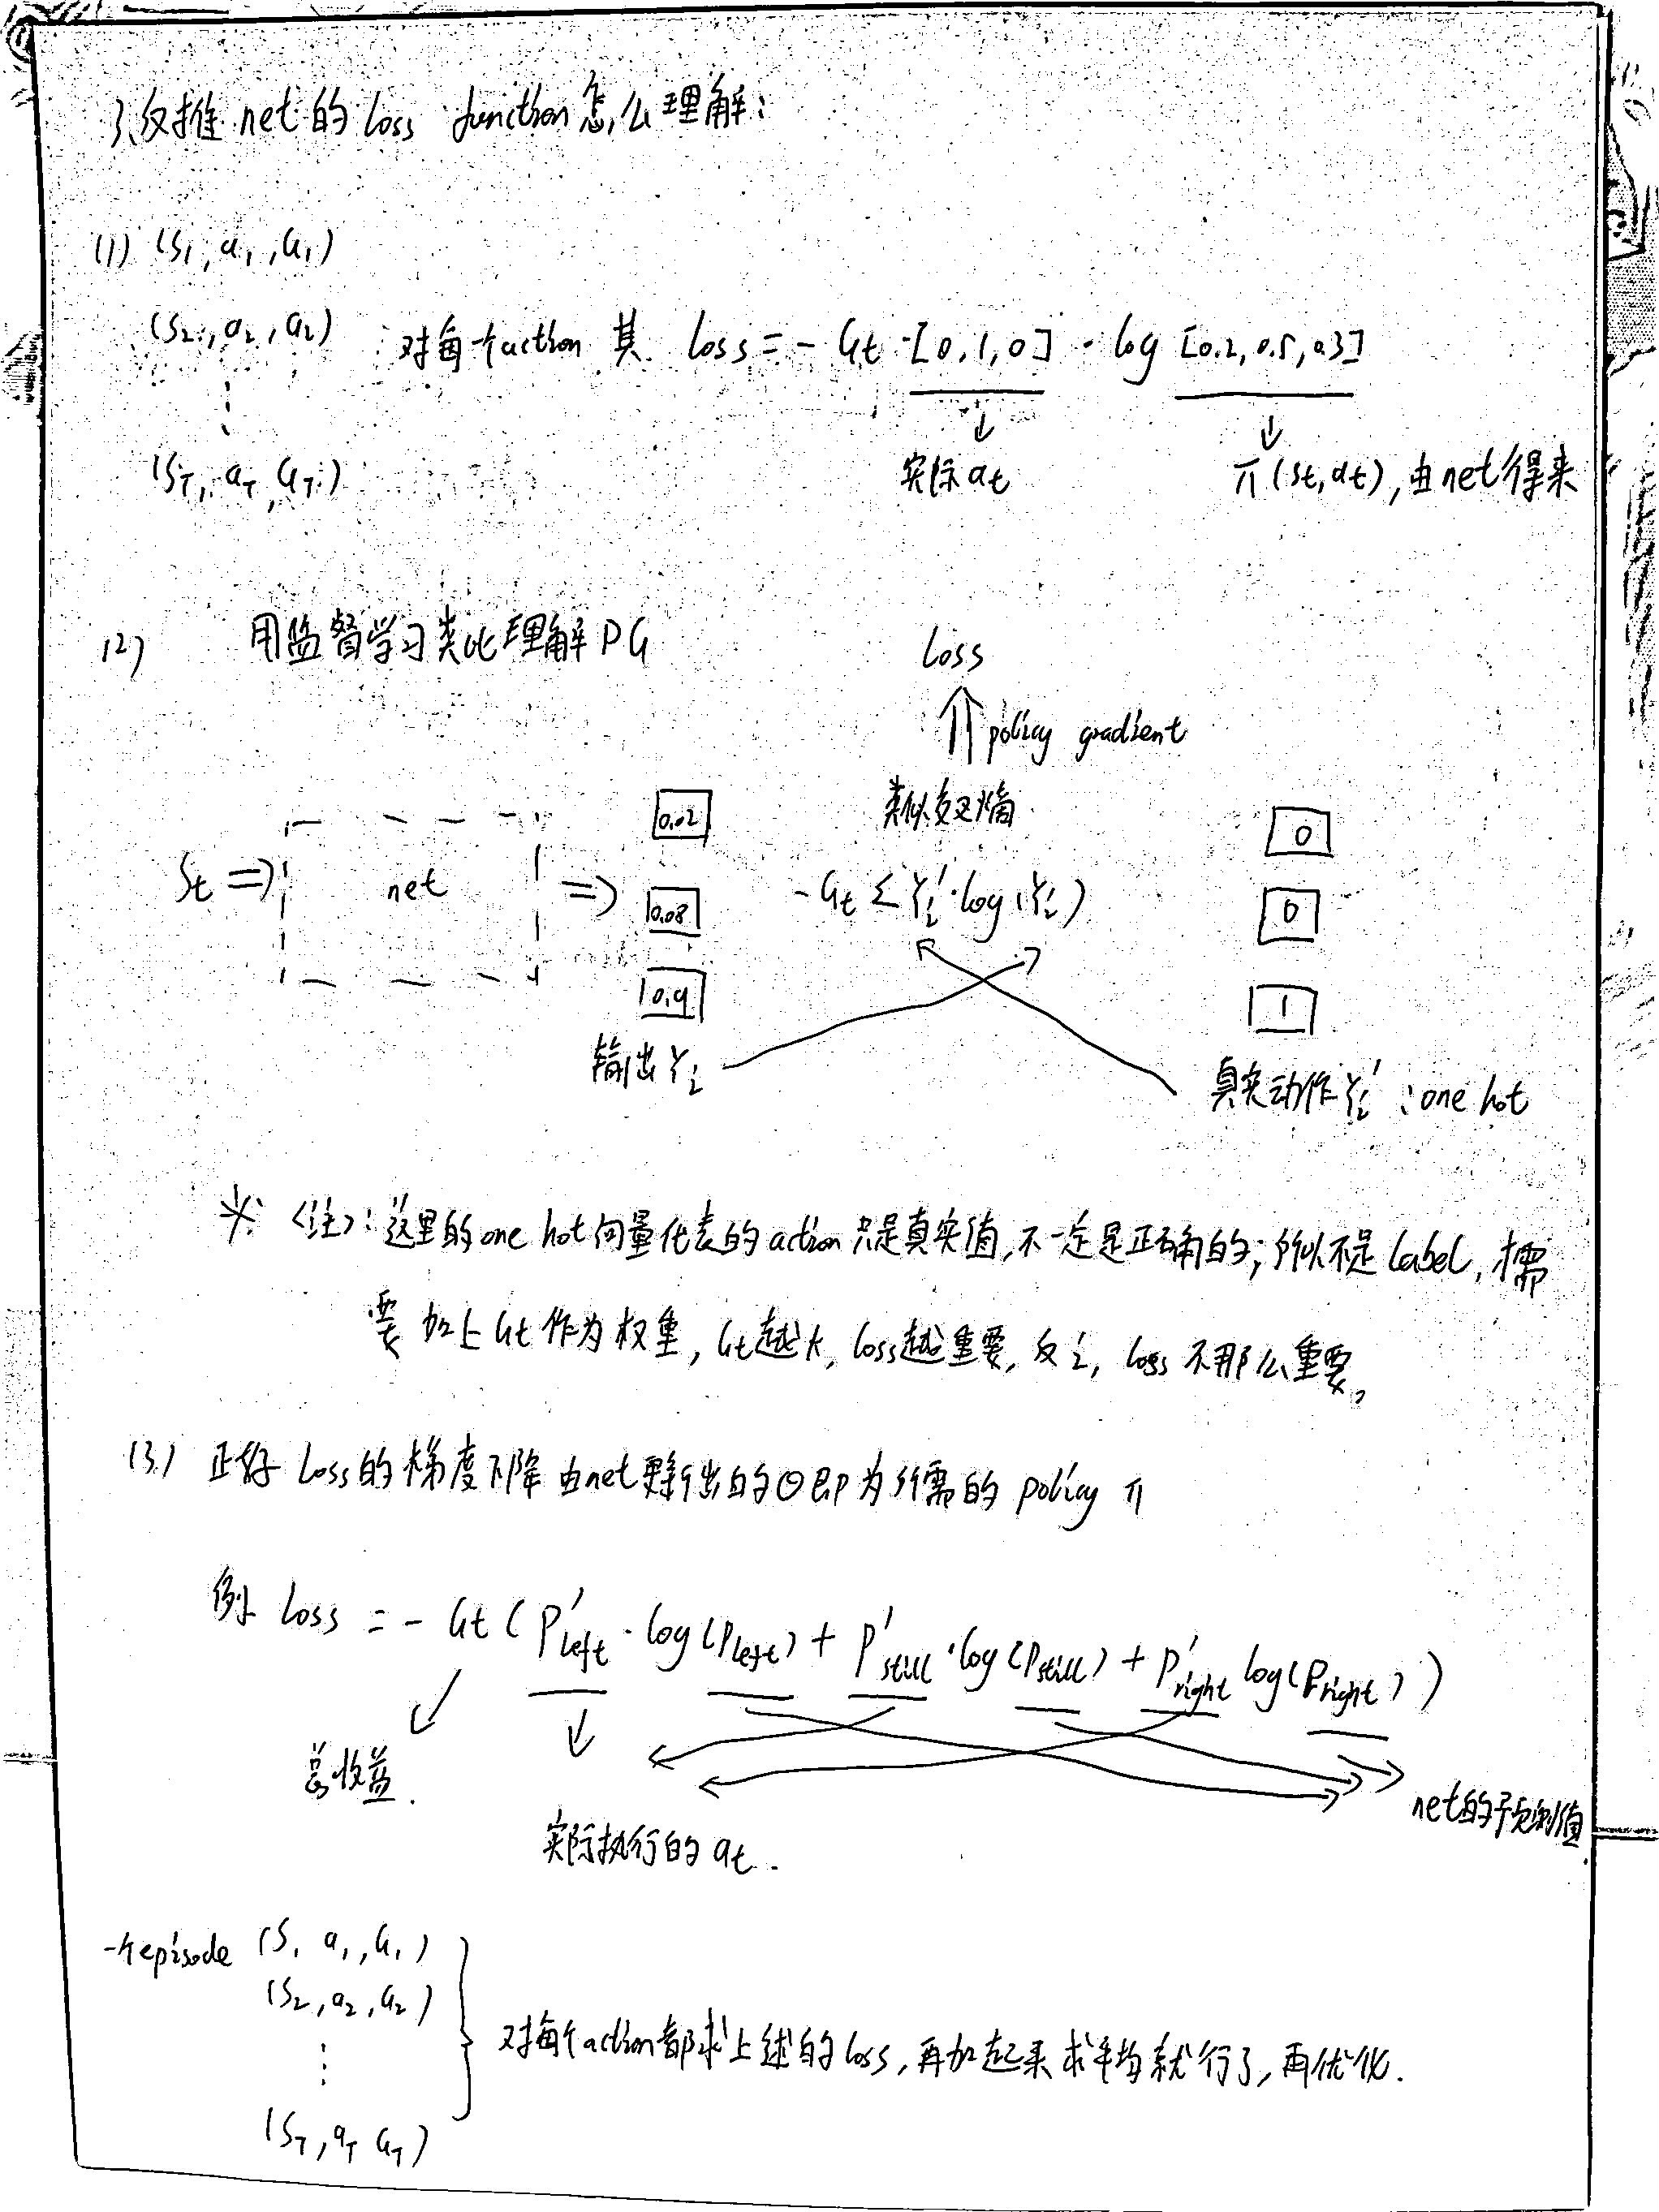 3、反推 net 的 loss function 怎么理解：
(1) (S1, a1, G1)
(S2, a2, G2) 对每个action 其 loss = - Gt · [0, 1, 0] · log [0.2, 0.5, 0.3]
⋮
(ST, aT, GT) 实际 at π(st, at), 由net得来
(2) 用监督学习类比理解 PG
Loss
policy gradient
类似交叉熵
0.02 0
St => net => 0.08 - Gt Σ Yi' · log(Yi) 0
0.9 1
输出 Yi
真实动作 Yi' : one hot
※ <注>：这里的 one hot 向量代表的 action 只是真实值，不一定是正确的；所以不是 label，才需
要加上 Gt 作为权重，Gt越大，loss越重要，反之，loss 不那么重要。
(3) 正好 Loss的梯度下降 由net更新出的θ即为所需的 policy π
例 loss = - Gt ( P'left · log(Pleft) + P'still · log(Pstill) + P'right log(Pright) )
总收益.
net的预测值
实际执行的 at.
一个episode (S1 a1, G1)
(S2, a2, G2)
⋮
对每个action都求上述的 loss, 再加起来求平均就行了, 再优化.
(ST, aT GT)